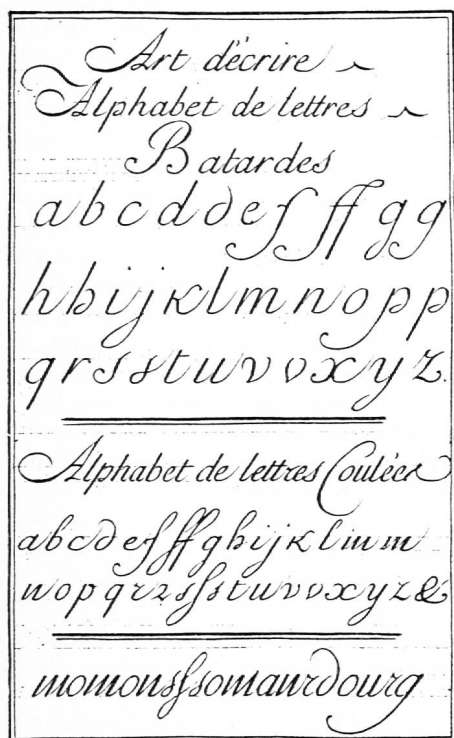 Art d'écrire
Alphabet de lettres
Batardes
a b c d d e f ff g g
h h i j k l m n o p p
q r s s t u v v x y z.
Alphabet de lettres Coulées
a b c d e f ff g h i j k l m m
n o p q r z s fs s t u v v x y z &